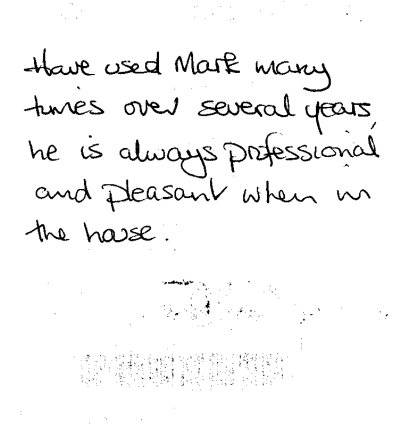 Have used Mark many
times over several years,
he is always professional
and pleasant when in
the house.